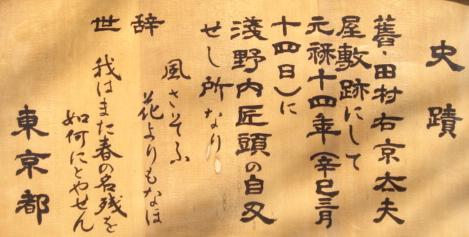 史蹟
舊・田村右京太夫
屋敷跡にして
元禄十四年(辛巳三月
十四日)に
淺野内匠頭の自刃
せし所なり
辞世
風さそふ
花よりもなほ
我はまた春の名残を
如何にとやせん
東京都